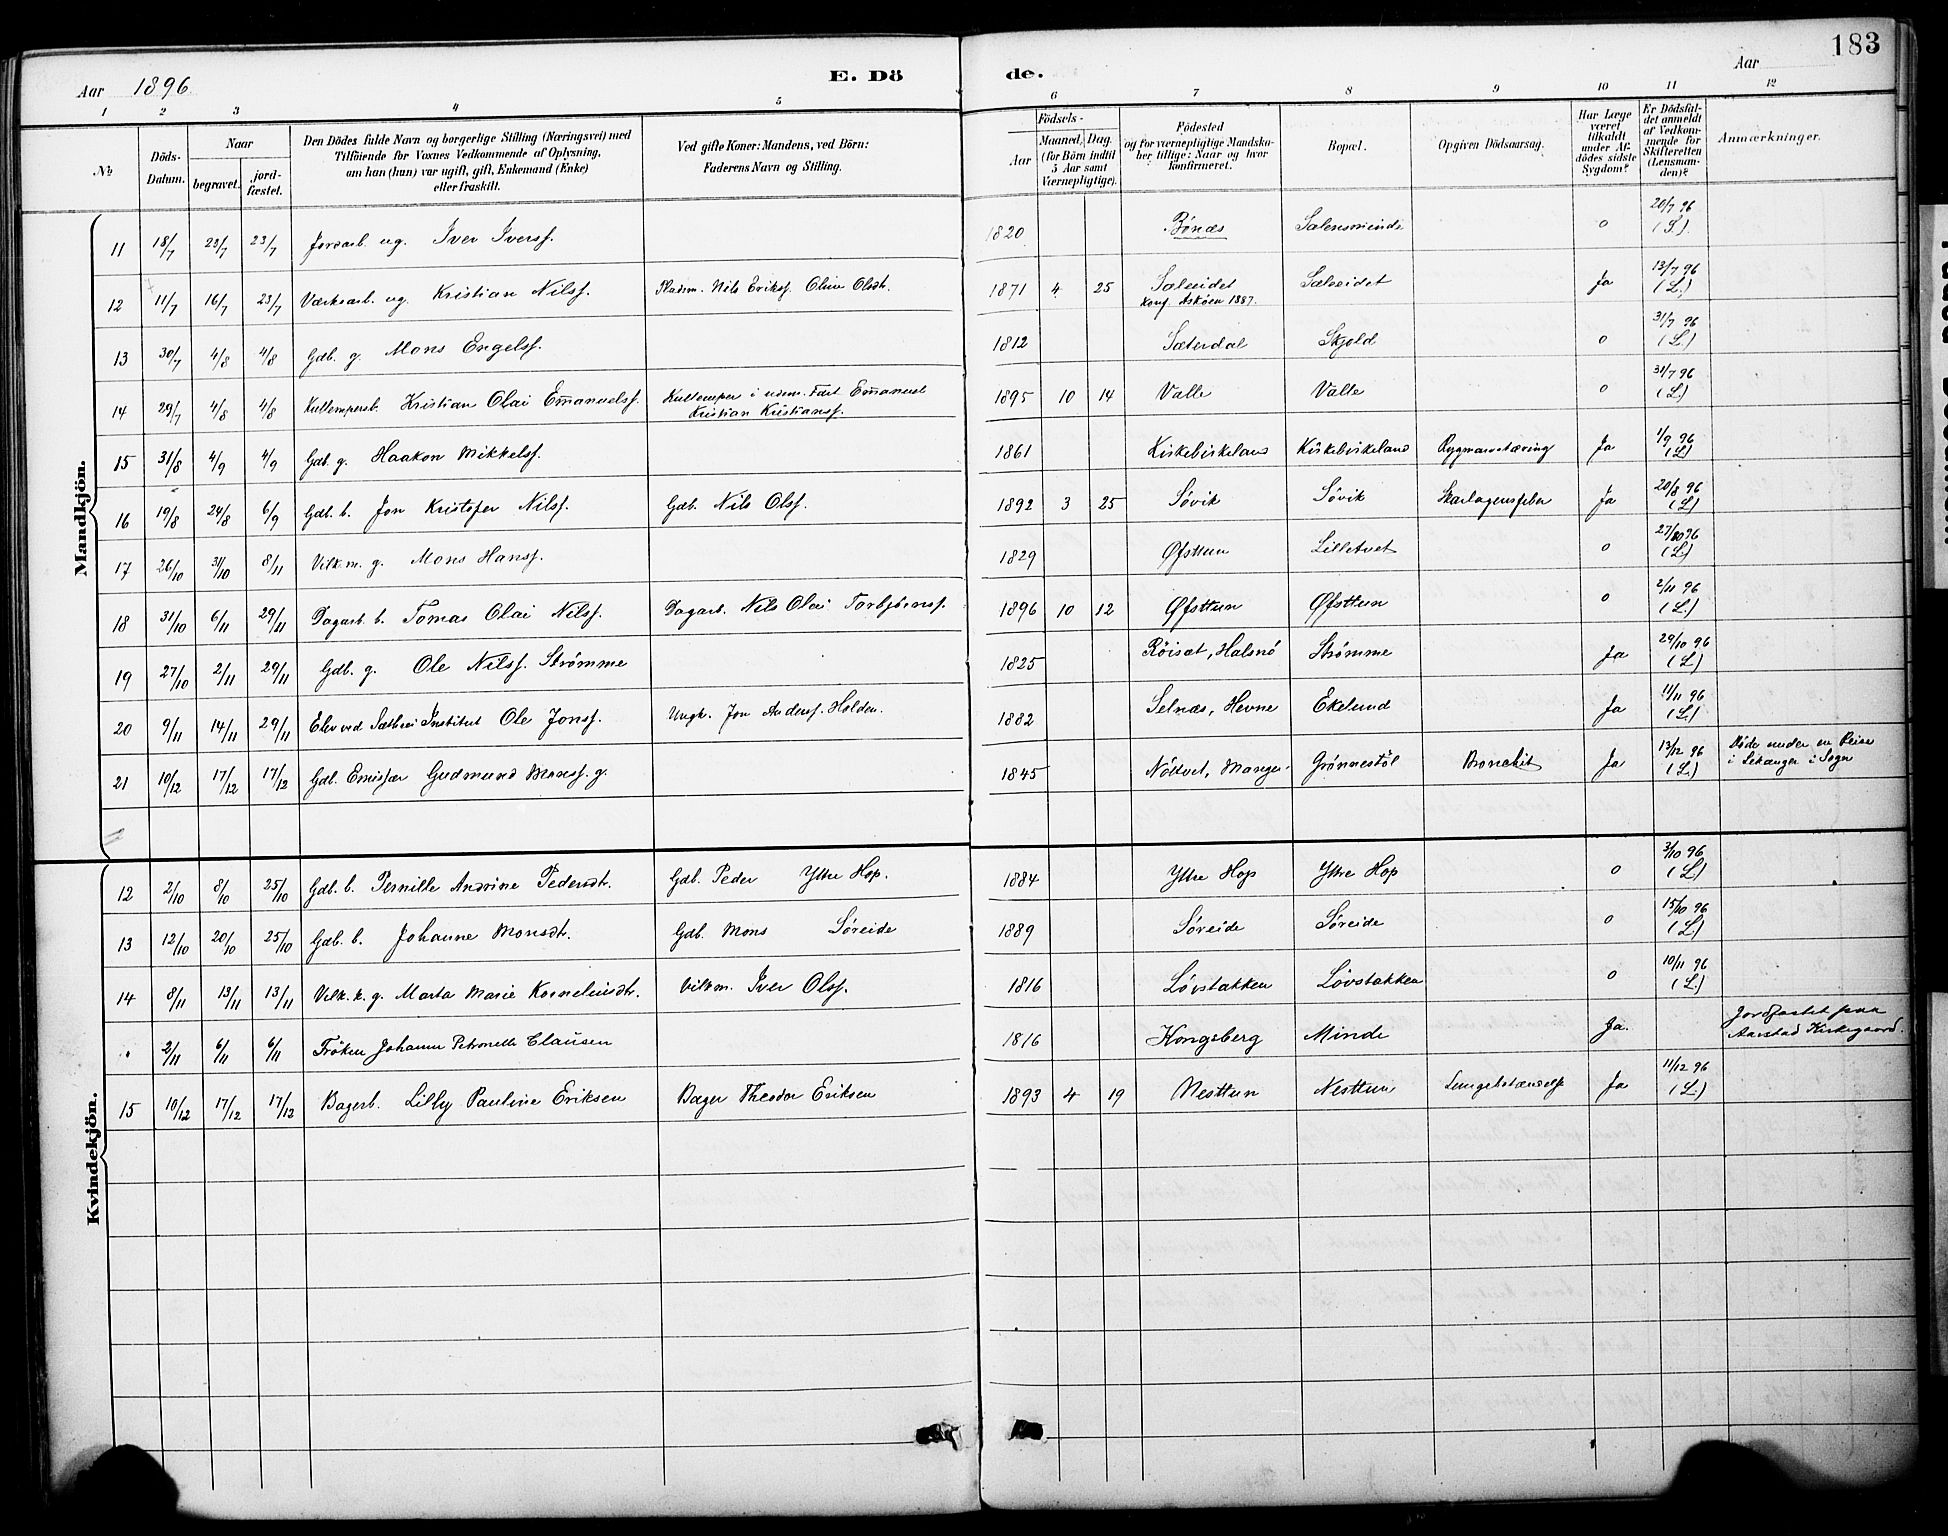 183
Aar 1896 E. Dö de. Aar
1 2 3 4 5 6 7 8 9 10 11 12
№ Döds-Datum. Naar begravet. jord-fæstet. Den Dödes fulde Navn og borgerlige Stilling (Næringsvei) med Tilföiende for Voxnes Vedkommende af Oplysning, om han (hun) var ugift, gift, Enkemand (Enke) eller fraskilt. Ved gifte Koner: Mandens, ved Börn: Faderens Navn og Stilling. Födsels- Aar Maaned, Dag. (for Börn indtil 5 Aar samt Værnepligtige). Födested og for værnepligtige Mandskaber tillige: Naar og hvor konfirmeret. Bopæl. Opgiven Dödsaarsag. Har Læge været tilkaldt under Afdödes sidste Sygdom? Er Dödsfaldet anmeldt af Vedkommende for Skifteretten (Lensmanden)? Anmærkninger.
Mandkjön.
11 18/7 23/7 23/7 Jordarb. ug. Iver Iversf. 1820 Bönæs Sælensminde o 20/7 96 (L).
12 11/7 16/7 23/7 Værksarb. ug. Kristian Nilsf. Pladsm. Nils Eriksf. Oline Olsdt. 1871 4 25 Sælveidet Konf. Askøen 1887. Sælveidet Ja 13/7 96 (L.)
13 30/7 4/8 4/8 Gdb. g. Mons Engelsf. 1812 Sæterdal Skjold o 31/7 96 (L.)
14 29/7 4/8 4/8 Kultempersb. Kristian Olai Emanuelsf. Kultemper i udenr. Fart Emanuel Kristian Kristiansf. 1895 10 14 Valle Valle o 31/7 96 (L.)
15 31/8 4/9 4/9 Gdb. g. Haakon Mikkelsf. 1861 Kirkebirkeland Kirkebirkeland Rygmarvstæring Ja 1/9 96 (L)
16 19/8 24/8 6/9 Gdb. b. Jon Kristofer Nilsf. Gdb. Nils Olsf. 1892 3 25 Søvik Søvik Skarlagensfeber Ja 20/8 96 (L)
17 26/10 31/10 8/11 Vilk.m. g. Mons Hansf. 1829 Øfsttun Lilletvet o 27/10 96 (L)
18 31/10 6/11 29/11 Dagarb. b. Tomas Olai Nilsf. Dagarb. Nils Olai Torbjörnsf. 1896 10 12 Øfsttun Øfsttun o 2/11 96 (L.)
19 27/10 2/11 29/11 Gdb. g. Ole Nilsf. Strømme 1825 Röisæt, Halsnö Strømme Ja 29/10 96 (L)
20 9/11 14/11 29/11 Elev ved Institut Ole Jonsf. Ungk. Jon Andersf. Holden. 1882 Selnæs, Hevne Ekelund Ja 11/11 96 (L.)
21 10/12 17/12 17/12 Gdb. Emisfær Gudmund Monsf. g. 1845 Nöttvet, Manger Grönnestöl Bronchit Ja 13/12 96 (L) Døde under en Reise i Lekanger i Sogn
Kvindekjön.
12 2/10 8/10 25/10 Gdb. b. Pernille Andrine Pedersdtr. Gdb. Peder Yttre Hop. 1884 Yttre Hop Yttre Hop o 3/10 96 (L)
13 12/10 20/10 25/10 Gdb. b. Johanne Monsdt. Gdb. Mons Søreide 1889 Søreide Søreide o 15/10 96 (L)
14 8/11 13/11 13/11 Vilk. k. g. Marta Marie Korneliusdtr. Vilkm. Iver Olsf. 1816 Løvstakken Løvstakken o 10/11 96 (L.)
2/11 6/11 6/11 Fröken Johanne Petronelle Clausen 1816 Kongsberg Minde Ja. Jordfæstet paa Aarstad Kirkegaard.
15 10/12 17/12 17/12 Bagerb. Lilly Pauline Eriksen Bager Theodor Eriksen 1893 4 19 Nesttun Nesttun Lungebetændelse Ja 11/12 96 (L.)